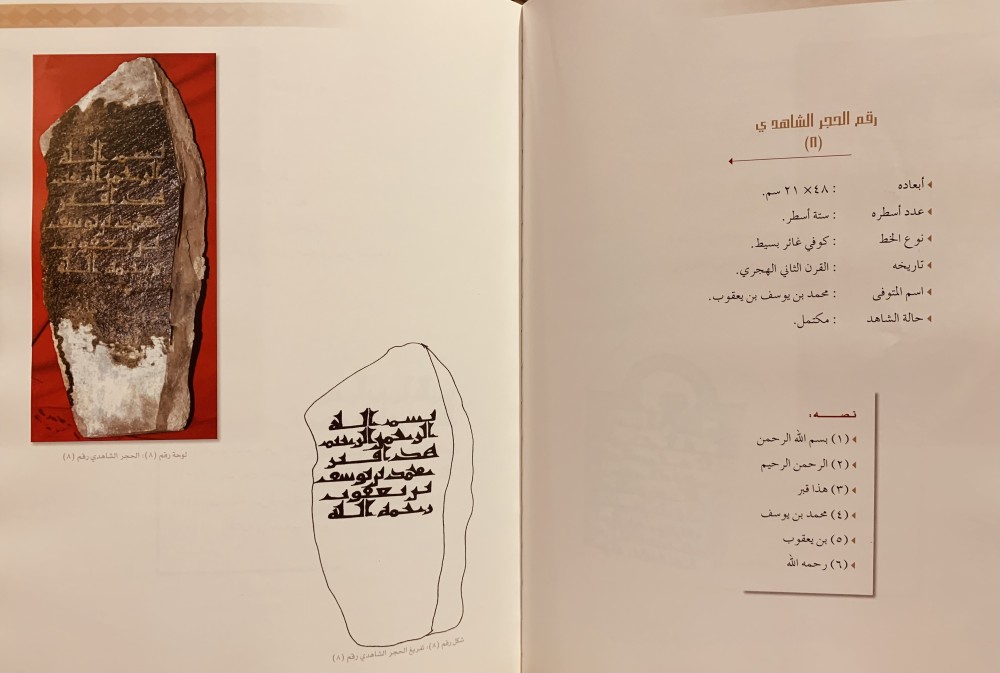 رقم الحجر الشاهدي
(٨)
أبعاده : ٤٨× ٢١ سم.
عدد أسطره : ستة أسطر.
نوع الخط : كوفي غائر بسيط.
تاريخه : القرن الثاني الهجري.
اسم المتوفى : محمد بن يوسف بن يعقوب.
حالة الشاهد : مكتمل.
نصه:
(١) بسم الله الرحمن
(٢) الرحمن الرحيم
(٣) هذا قبر
(٤) محمد بن يوسف
(٥) بن يعقوب
(٦) رحمه الله
بسم الله
الرحمن الرحيم
هذا قبر
محمد بن يوسف
بن يعقوب
رحمه الله
لوحة رقم (٨): الحجر الشاهدي رقم (٨)
بسم الله
الرحمن الرحيم
هذا قبر
محمد بن يوسف
بن يعقوب
رحمه الله
شكل رقم (٨): تفريغ الحجر الشاهدي رقم (٨)